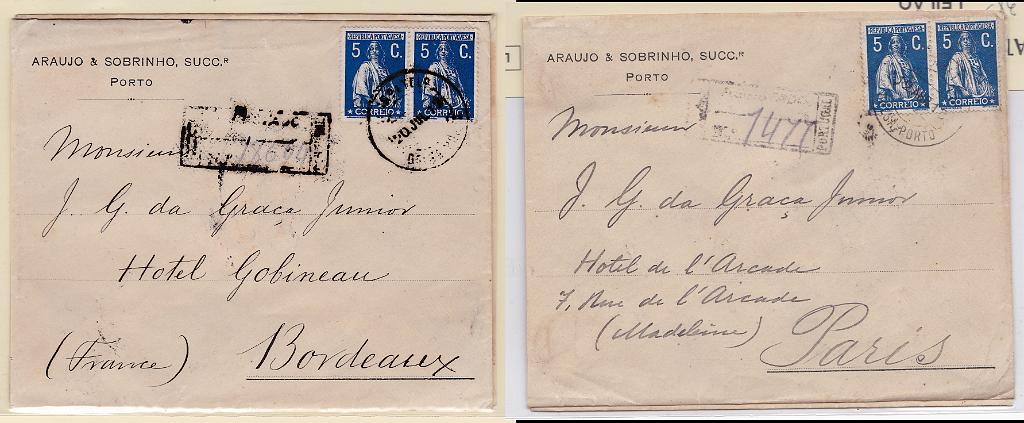 REPUBLICA PORTUGUESA REPUBLICA PORTUGUESA
5 C. 5 C.
CORREIO CORREIO
ARAUJO & SOBRINHO, SUCC.R
PORTO
Monsieur
J. G. da Graça Junior
Hotel Gobineau
(France) Bordeaux
LEILAO
REPUBLICA PORTUGUESA REPUBLICA PORTUGUESA
5 C. 5 C.
CORREIO CORREIO
PORTO
ARAUJO & SOBRINHO, SUCC.R
PORTO
1477
PORTUGAL
Monsieur
J. G. da Graça Junior
Hotel de l'Arcade
7, Rue de l'Arcade
(Madeleine)
Paris